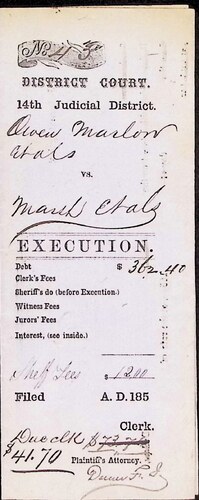 No. 4
DISTRICT COURT.
14th Judicial District.
Owen Marlow
et als
vs.
Marsh et als
EXECUTION.
Debt $ 362.40
Clerk's Fees
Sheriff's do (before Execution.)
Witness Fees
Jurors' Fees
Interest, (see inside.)
Sheff Fees $ 12.00
Filed A. D. 185
Clerk.
Due clk
$41.70 Plaintiff's Attorney.